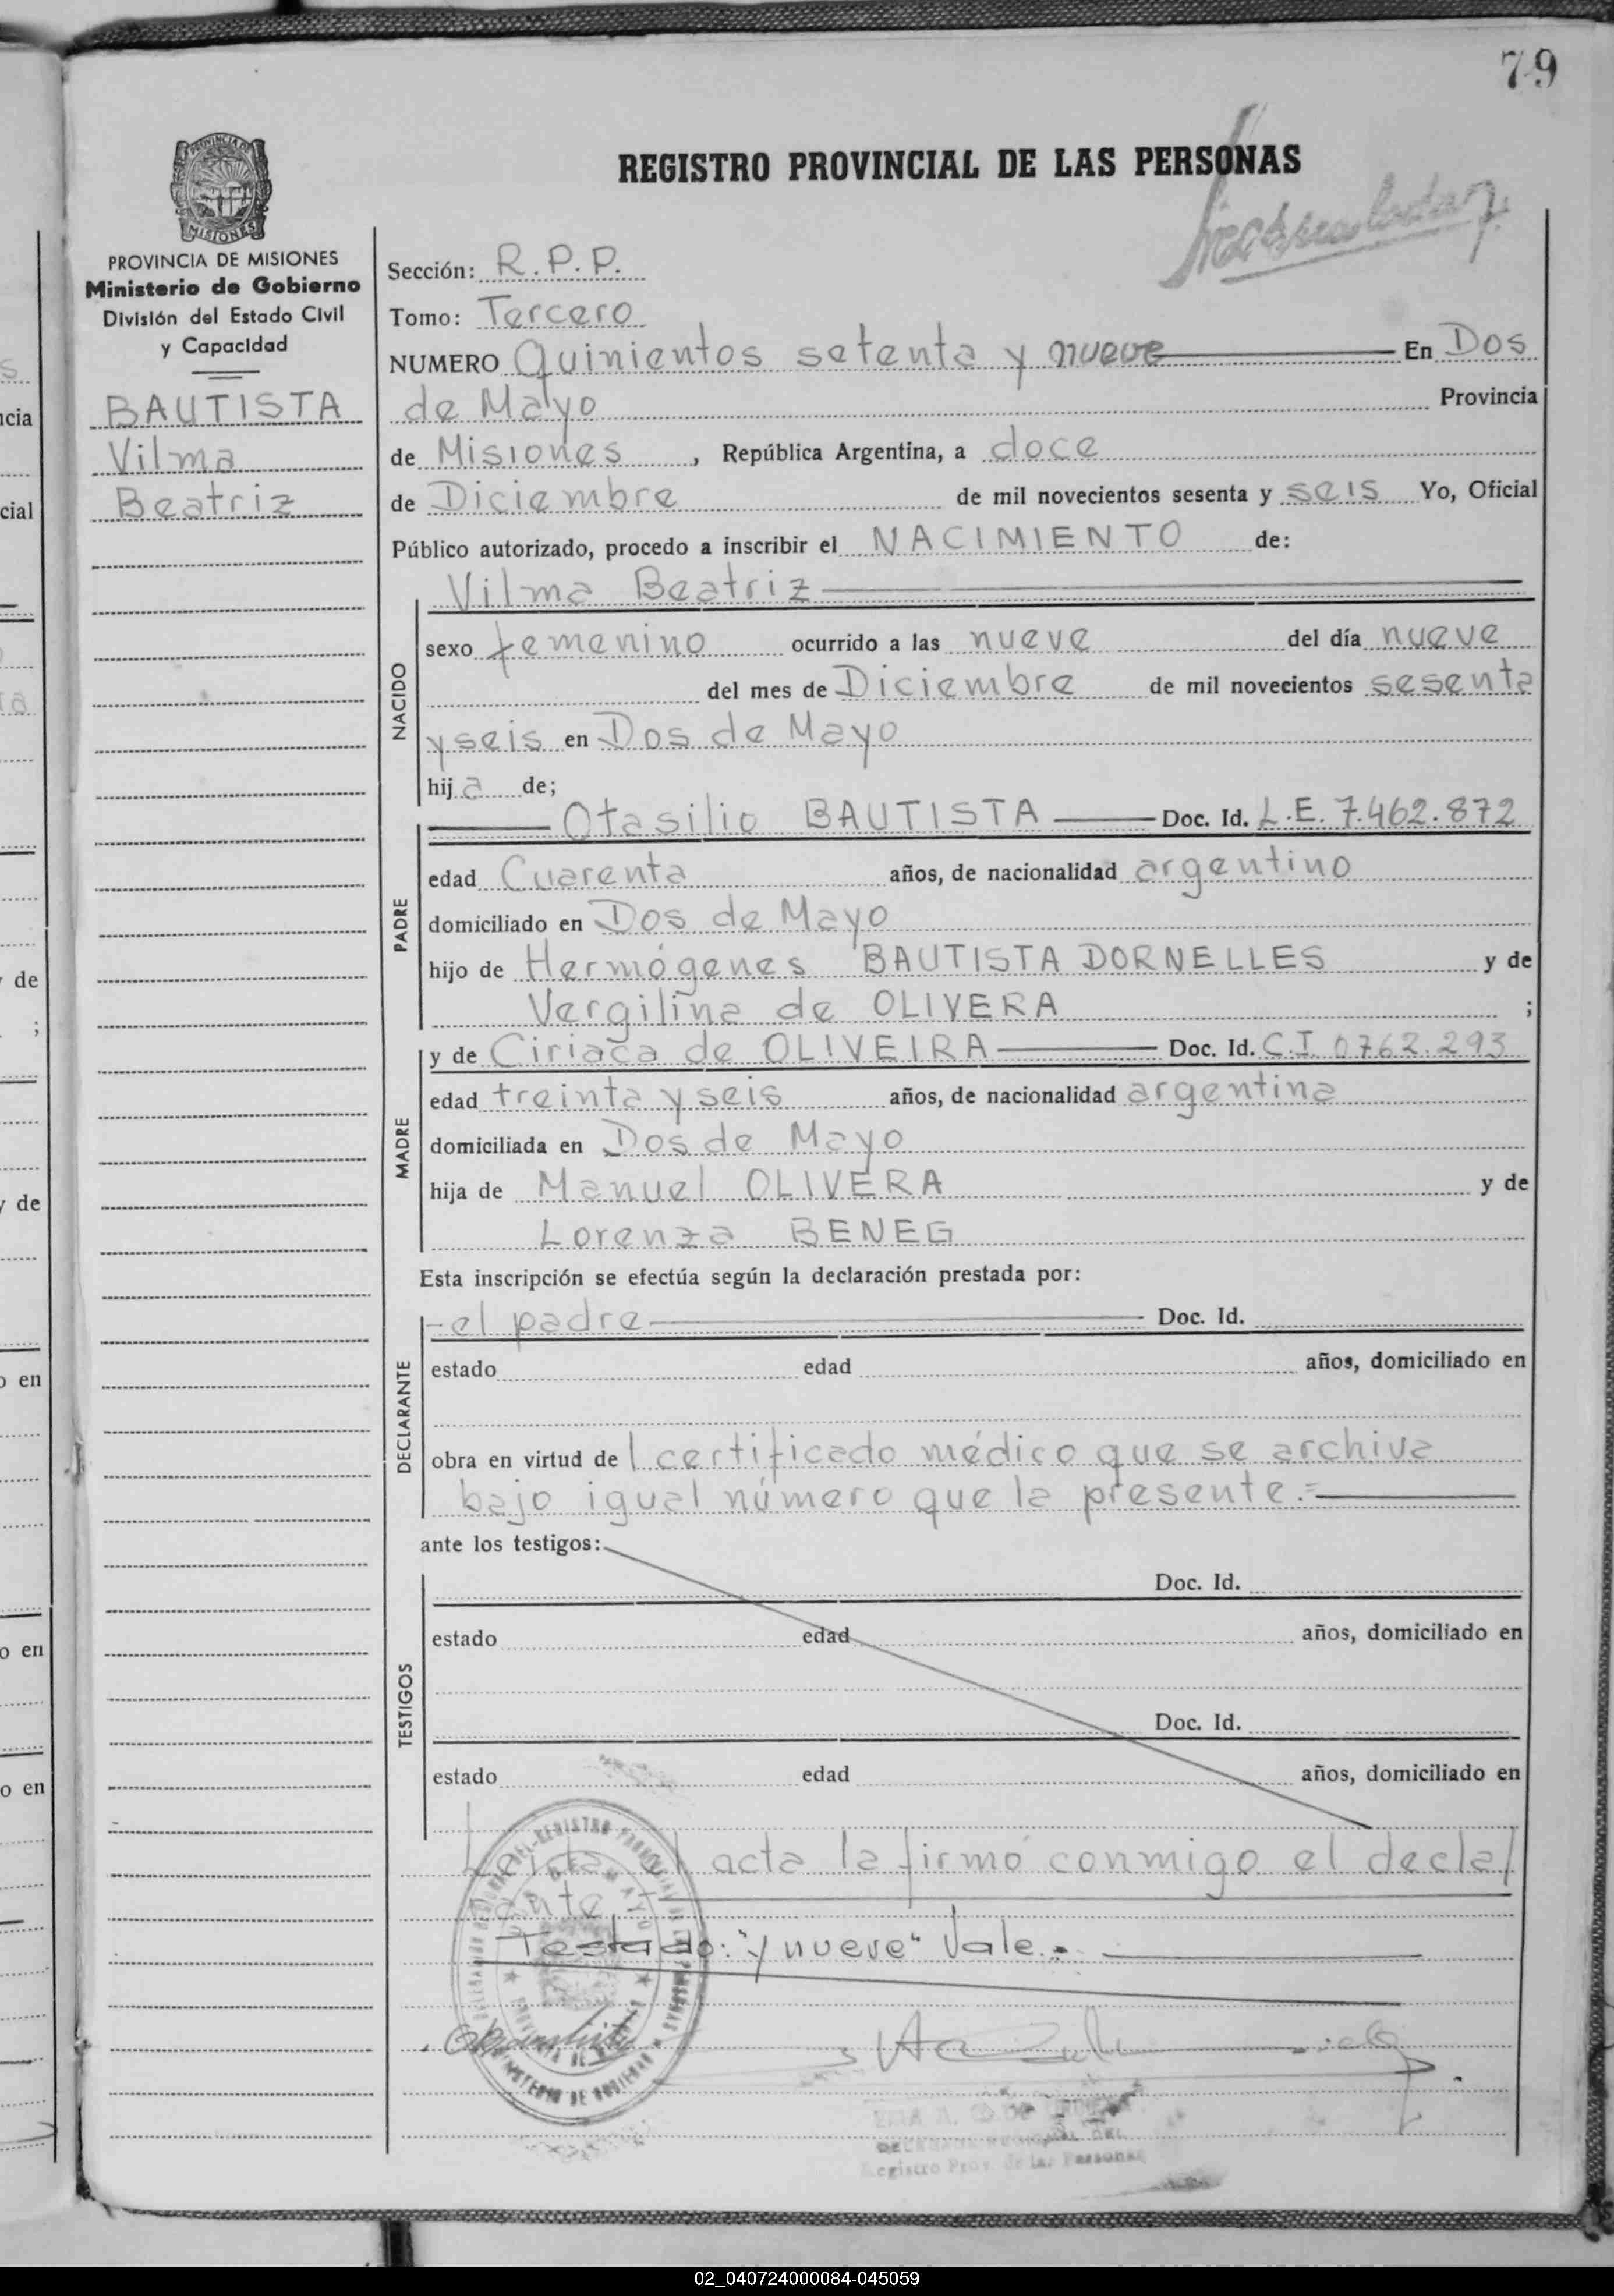 79
REGISTRO PROVINCIAL DE LAS PERSONAS
MISIONES
PROVINCIA DE MISIONES
Ministerio de Gobierno
División del Estado Civil
y Capacidad
BAUTISTA
Vilma
Beatriz
Sección: R.P.P.
Tomo: Tercero
NUMERO Quinientos setenta y nueve En Dos
de Mayo Provincia
de Misiones, República Argentina, a doce
de Diciembre de mil novecientos sesenta y seis Yo, Oficial
Público autorizado, procedo a inscribir el NACIMIENTO de:
Vilma Beatriz
NACIDO
sexo femenino ocurrido a las nueve del día nueve
del mes de Diciembre de mil novecientos sesenta
y seis en Dos de Mayo
hija de;
PADRE
Otasilio BAUTISTA Doc. Id. L.E. 7.462.872
edad Cuarenta años, de nacionalidad argentino
domiciliado en Dos de Mayo
hijo de Hermógenes BAUTISTA DORNELLES y de
Vergilina de OLIVERA ;
MADRE
y de Ciriaca de OLIVEIRA Doc. Id. C.I. 0762.293
edad treinta y seis años, de nacionalidad argentina
domiciliada en Dos de Mayo
hija de Manuel OLIVERA y de
Lorenza BENEG
Esta inscripción se efectúa según la declaración prestada por:
DECLARANTE
-el padre Doc. Id.
estado edad años, domiciliado en
obra en virtud de l certificado médico que se archiva
bajo igual número que la presente.=
ante los testigos:
TESTIGOS
Doc. Id.
estado edad años, domiciliado en
Doc. Id.
estado edad años, domiciliado en
acta la firmó conmigo el declar
ante
Testado: "y nueve" Vale.-
Registro Prov. de las Personas
02_040724000084-045059